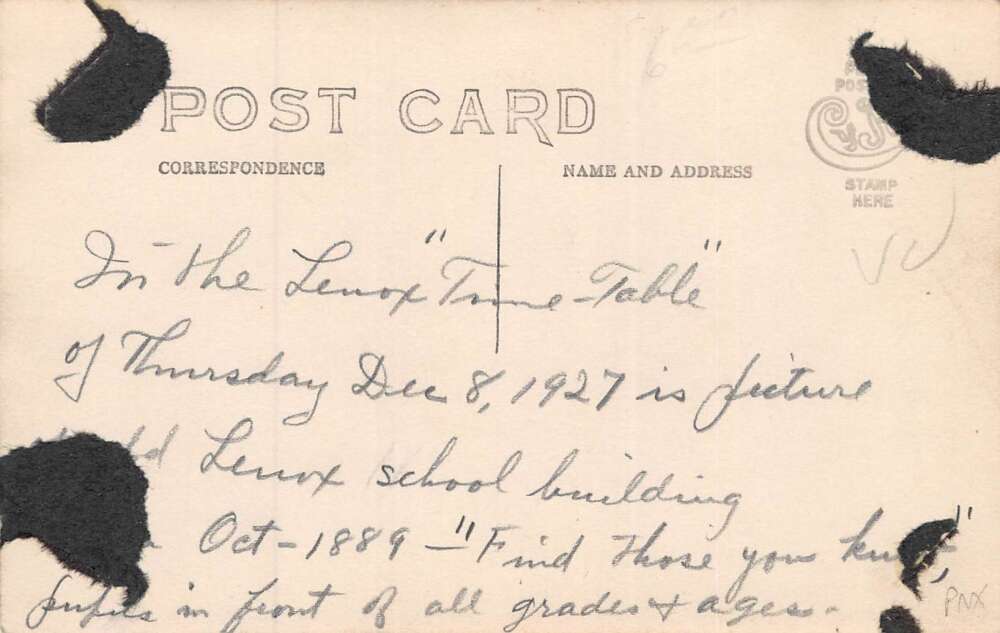 POST CARD
CORRESPONDENCE
NAME AND ADDRESS
STAMP
HERE
VU
In the Lenox "Time-Table"
of Thursday Dec 8, 1927 is picture
Lenox school building
Oct-1889 - "Find those you
pupils in front of all grades & ages.
PNX